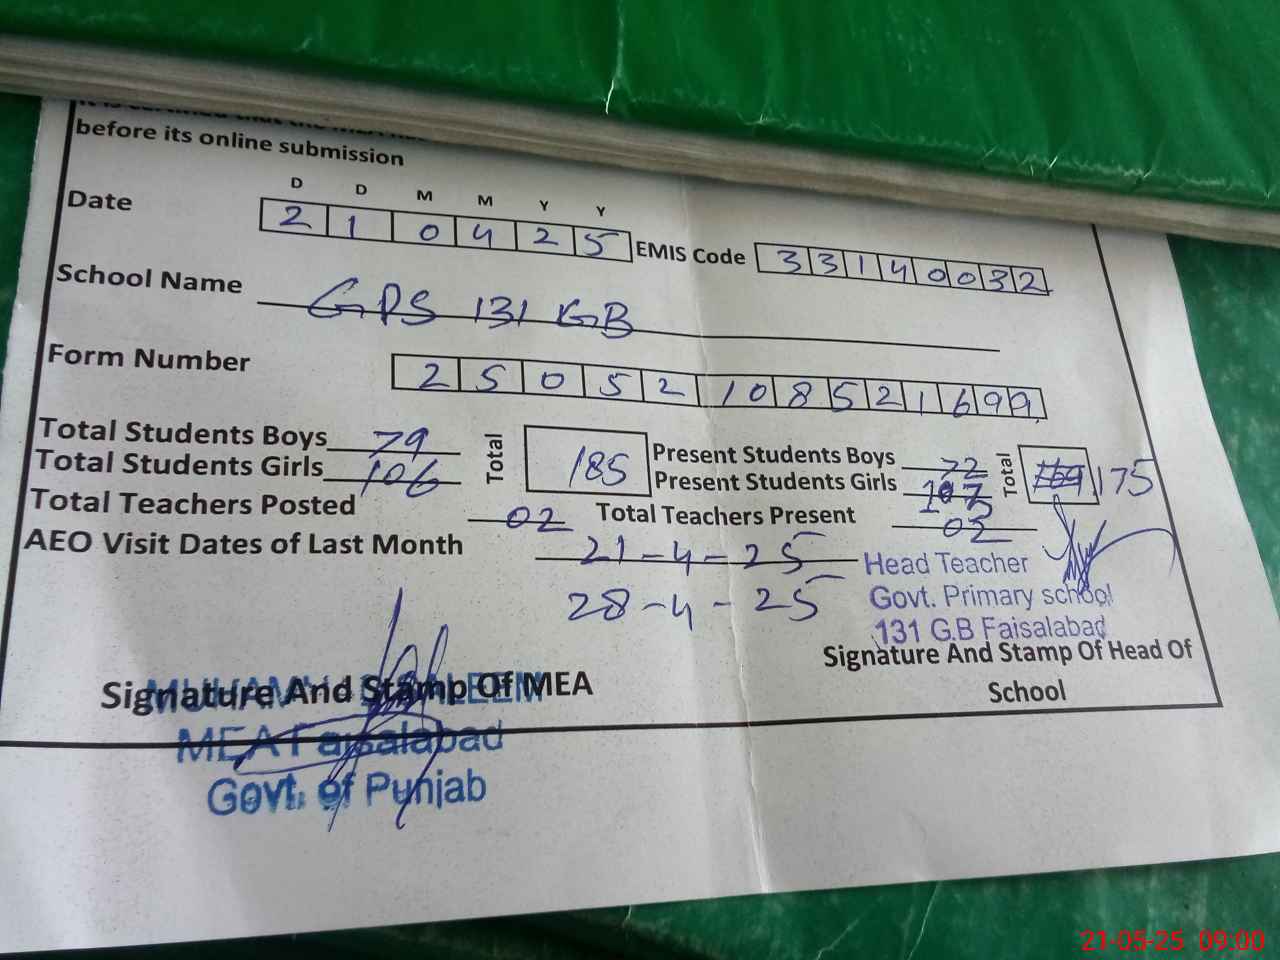 before its online submission
D D M M Y Y
Date 2 1 0 4 2 5 EMIS Code 3 3 1 4 0 0 3 2
School Name GPS 131 GB
Form Number 2 5 0 5 2 1 0 8 5 2 1 6 9 9
Total Students Boys 79 Total 185 Present Students Boys 72 Total 175
Total Students Girls 106 Present Students Girls
Total Teachers Posted 02 Total Teachers Present 02
AEO Visit Dates of Last Month 21-4-25
28-4-25
Head Teacher
Govt. Primary school
131 G.B Faisalabad
Signature And Stamp Of Head Of
School
Signature And Stamp Of MEA
MEA Faisalabad
Govt. of Punjab
21-05-25 09:00